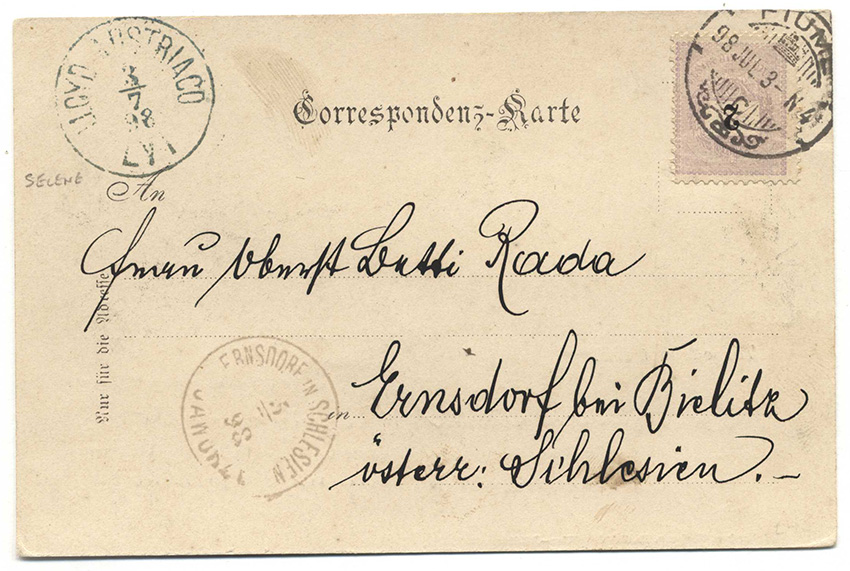 LLOYD AUSTRIACO
3/7
98
LVI
FIUME
98 JUL 3 - N. 4
SELENE
Correspondenz-Karte
An
Frau Oberst Betti Rada
Nur für die Adresse
ERNSDORF IN SCHLESIEN
5/7
98
JAWORZE
in Ernsdorf bei Bielitz
österr: Schlesien. –